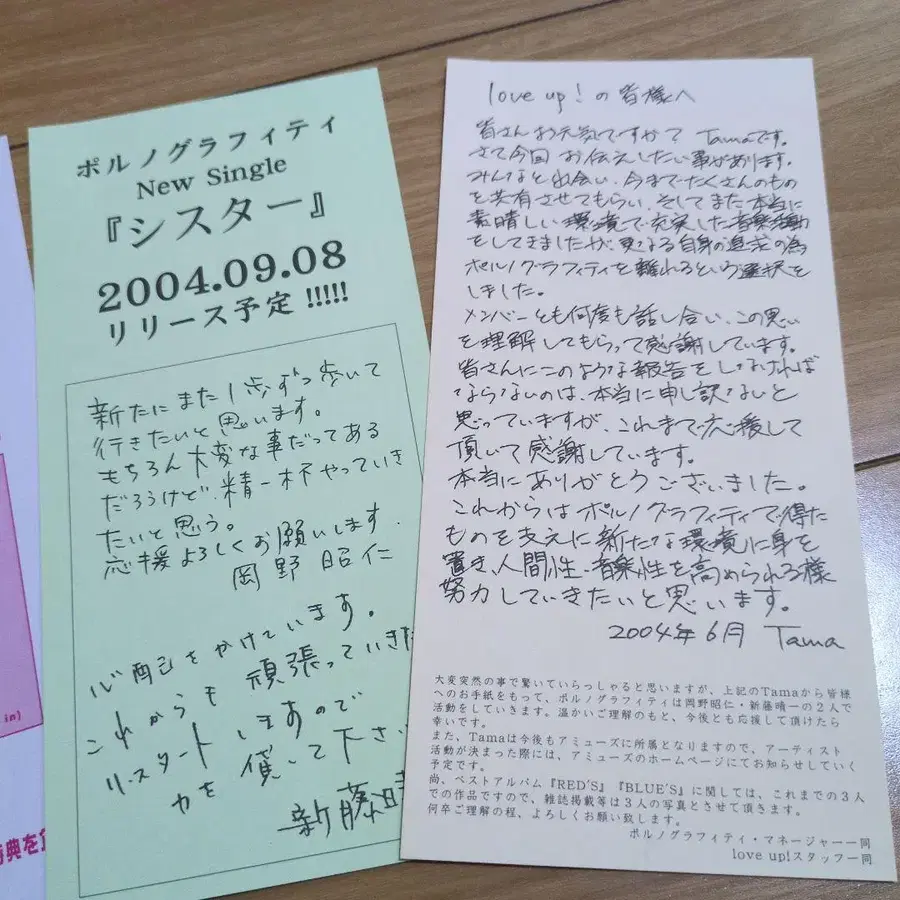 ポルノグラフィティ
New Single
『シスター』
2004.09.08
リリース予定 !!!!!
新たにまた1歩ずつ歩いて
行きたいと思います。
もちろん大変な事だってある
だろうけど、精一杯やっていき
たいと思う。
応援よろしくお願いします.
岡野昭仁
心配をかけています。
これからも頑張っていきた
リ・スタートしますので
力を貸して下さ
新藤晴
in)
特典を
love up!の皆様へ
皆さんお元気ですか? Tamaです。
さて今回お伝えしたい事があります。
みんなと出会い、今までたくさんのもの
を共有させてもらい、そしてまた本当に
素晴しい環境で充実した音楽活動
をしてきましたが、更なる自身の追求の為
ポルノグラフィティを離れるという選択を
しました。
メンバーとも何度も話し合い、この思い
を理解してもらって感謝しています。
皆さんにこのような報告をしなければ
ならないのは、本当に申し訳ないと
思っていますが、これまで応援して
頂いて感謝しています。
本当にありがとうございました。
これからはポルノグラフィティで得た
ものを支えに新たな環境に身を
置き、人間性、音楽性を高められる様
努力していきたいと思います。
2004年6月 Tama
大変突然の事で驚いていらっしゃると思いますが、上記のTamaから皆様
へのお手紙をもって、ポルノグラフィティは岡野昭仁・新藤晴一の2人で
活動をしていきます。温かいご理解のもと、今後とも応援して頂けたら
幸いです。
また、Tamaは今後もアミューズに所属となりますので、アーティスト
活動が決まった際には、アミューズのホームページにてお知らせしていく
予定です。
尚、ベストアルバム『RED'S』『BLUE'S』に関しては、これまでの3人
での作品ですので、雑誌掲載等は3人の写真とさせて頂きます。
何卒ご理解の程、よろしくお願い致します。
ポルノグラフィティ・マネージャー一同
love up!スタッフ一同